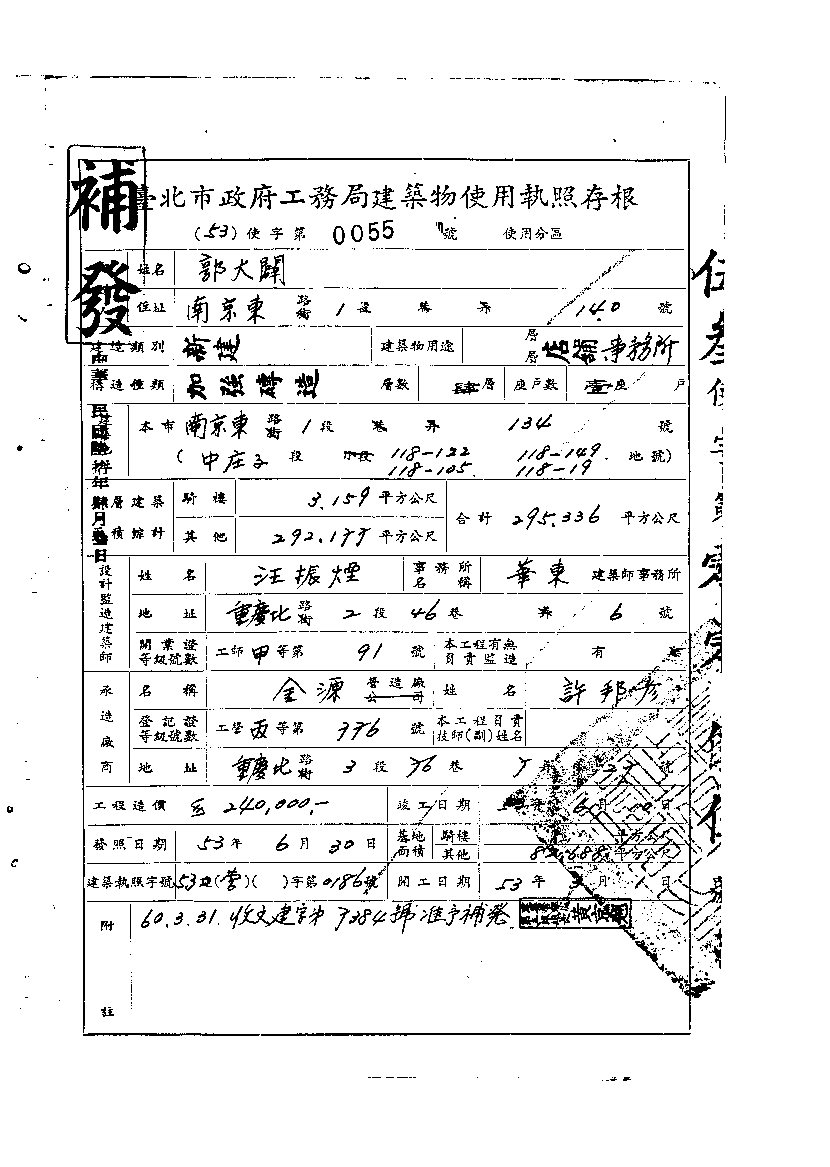 補發
臺北市政府工務局建築物使用執照存根
(53)使字第 0055 號 使用分區
姓名 郭大闢
住址 南京東 路街 1 段 巷 弄 140 號
建造類別 新建 建築物用途 層層 店舖 事務所
構造種類 加強磚造 層數 肆層 座戶數 壹座 戶
本市 南京東 路街 1 段 巷 弄 134 號
(中庄子 段 小段 118-122 118-149 地號)
118-105 118-19
層建築 騎樓 3.159 平方公尺 合計 295.336 平方公尺
面積綜計 其他 292.177 平方公尺
中華民國陸拾年 月 日
設計監造建築師
姓名 汪振煙 事務所名稱 華東 建築師事務所
地址 重慶北 路街 2 段 46 巷 弄 6 號
開業證等級號數 工師 甲 等第 91 號 本工程有無負責監造 有
承造廠商
名稱 金源 營造廠公司 姓名 許邦彥
登記證等級號數 工營 丙 等第 776 號 本工程負責技師(副)姓名
地址 重慶北 路街 3 段 76 巷 號
工程造價 240,000,- 竣工日期 年 6 月 日
發照日期 53 年 6 月 30 日 基地面積 騎樓 平方公尺
其他 平方公尺
建築執照字號 53 建(營)( )字第0186號 開工日期 53 年 3 月 1 日
附註 60.3.31.收文建字第7384號准予補發
伍叁使字第